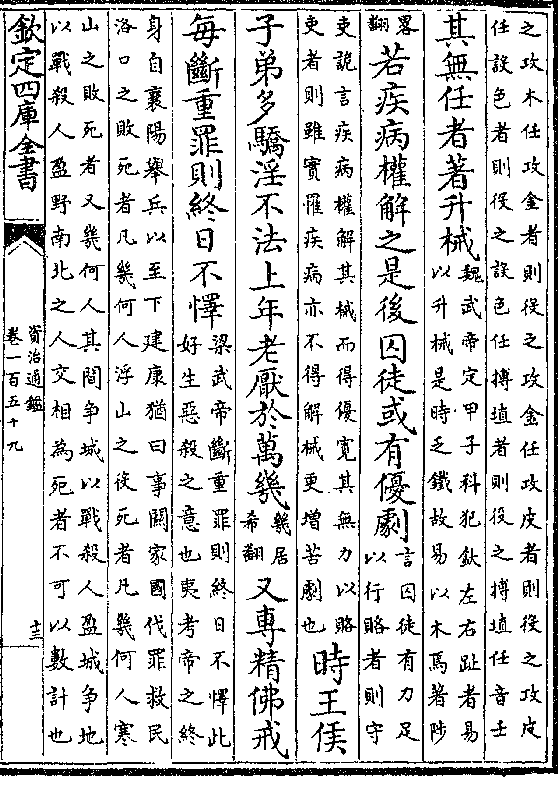 之攻木任攻金者則役之攻金任攻皮者則役之攻皮
任設色者則役之設色任摶埴者則役之摶埴任音壬
其無任者著升械
魏武帝定甲子科犯釱左右趾者易
以升械是時乏鐵故易以木焉著陟
畧
翻
若疾病權解之是後囚徒或有優劇
言囚徒有力足
以行賂者則守
吏説言疾病權解其械而得優寛其無力以賂
吏者則雖實罹疾病亦不得解械更増苦劇也
時王侯
子弟多驕淫不法上年老厭於萬幾
幾居
希翻
又專精佛戒
每斷重罪則終日不懌
梁武帝斷重罪則終日不懌此
好生惡殺之意也夷考帝之終
身自襄陽舉兵以至下建康猶曰事關家國伐罪救民
洛口之敗死者凡幾何人浮山之役死者凡幾何人寒
山之敗死者又幾何人其間争城以戰殺人盈城争地
以戰殺人盈野南北之人交相為死者不可以數計也
欽定四庫全書
資治通鑑
卷一百五十九
十三